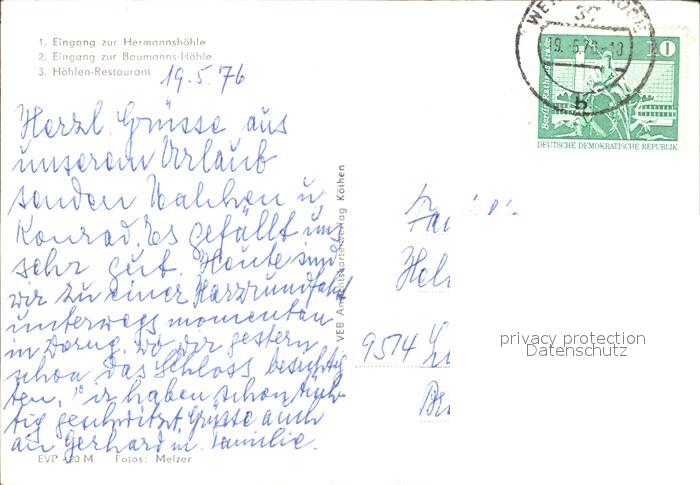 1. Eingang zur Hermannshöhle
2. Eingang zur Baumanns-Höhle
3. Höhlen-Restaurant
19.5.76
Herzl. Grüsse aus
unserem Urlaub
senden u.
Konrad. Es gefällt uns
sehr gut. Heute sind
wir zu einer Harzrundfahrt
unterwegs momentan
in wo wir gestern
schon das Schloss besichtig
ten. Wir haben schon tüch-
tig geschwitzt. Grüsse auch
an Gerhard m. Familie.
EVP -20 M Fotos: Melzer
VEB Ansichtskartenverlag Köthen
10
Berlin
DEUTSCHE DEMOKRATISCHE REPUBLIK
b
9514
privacy protection
Datenschutz